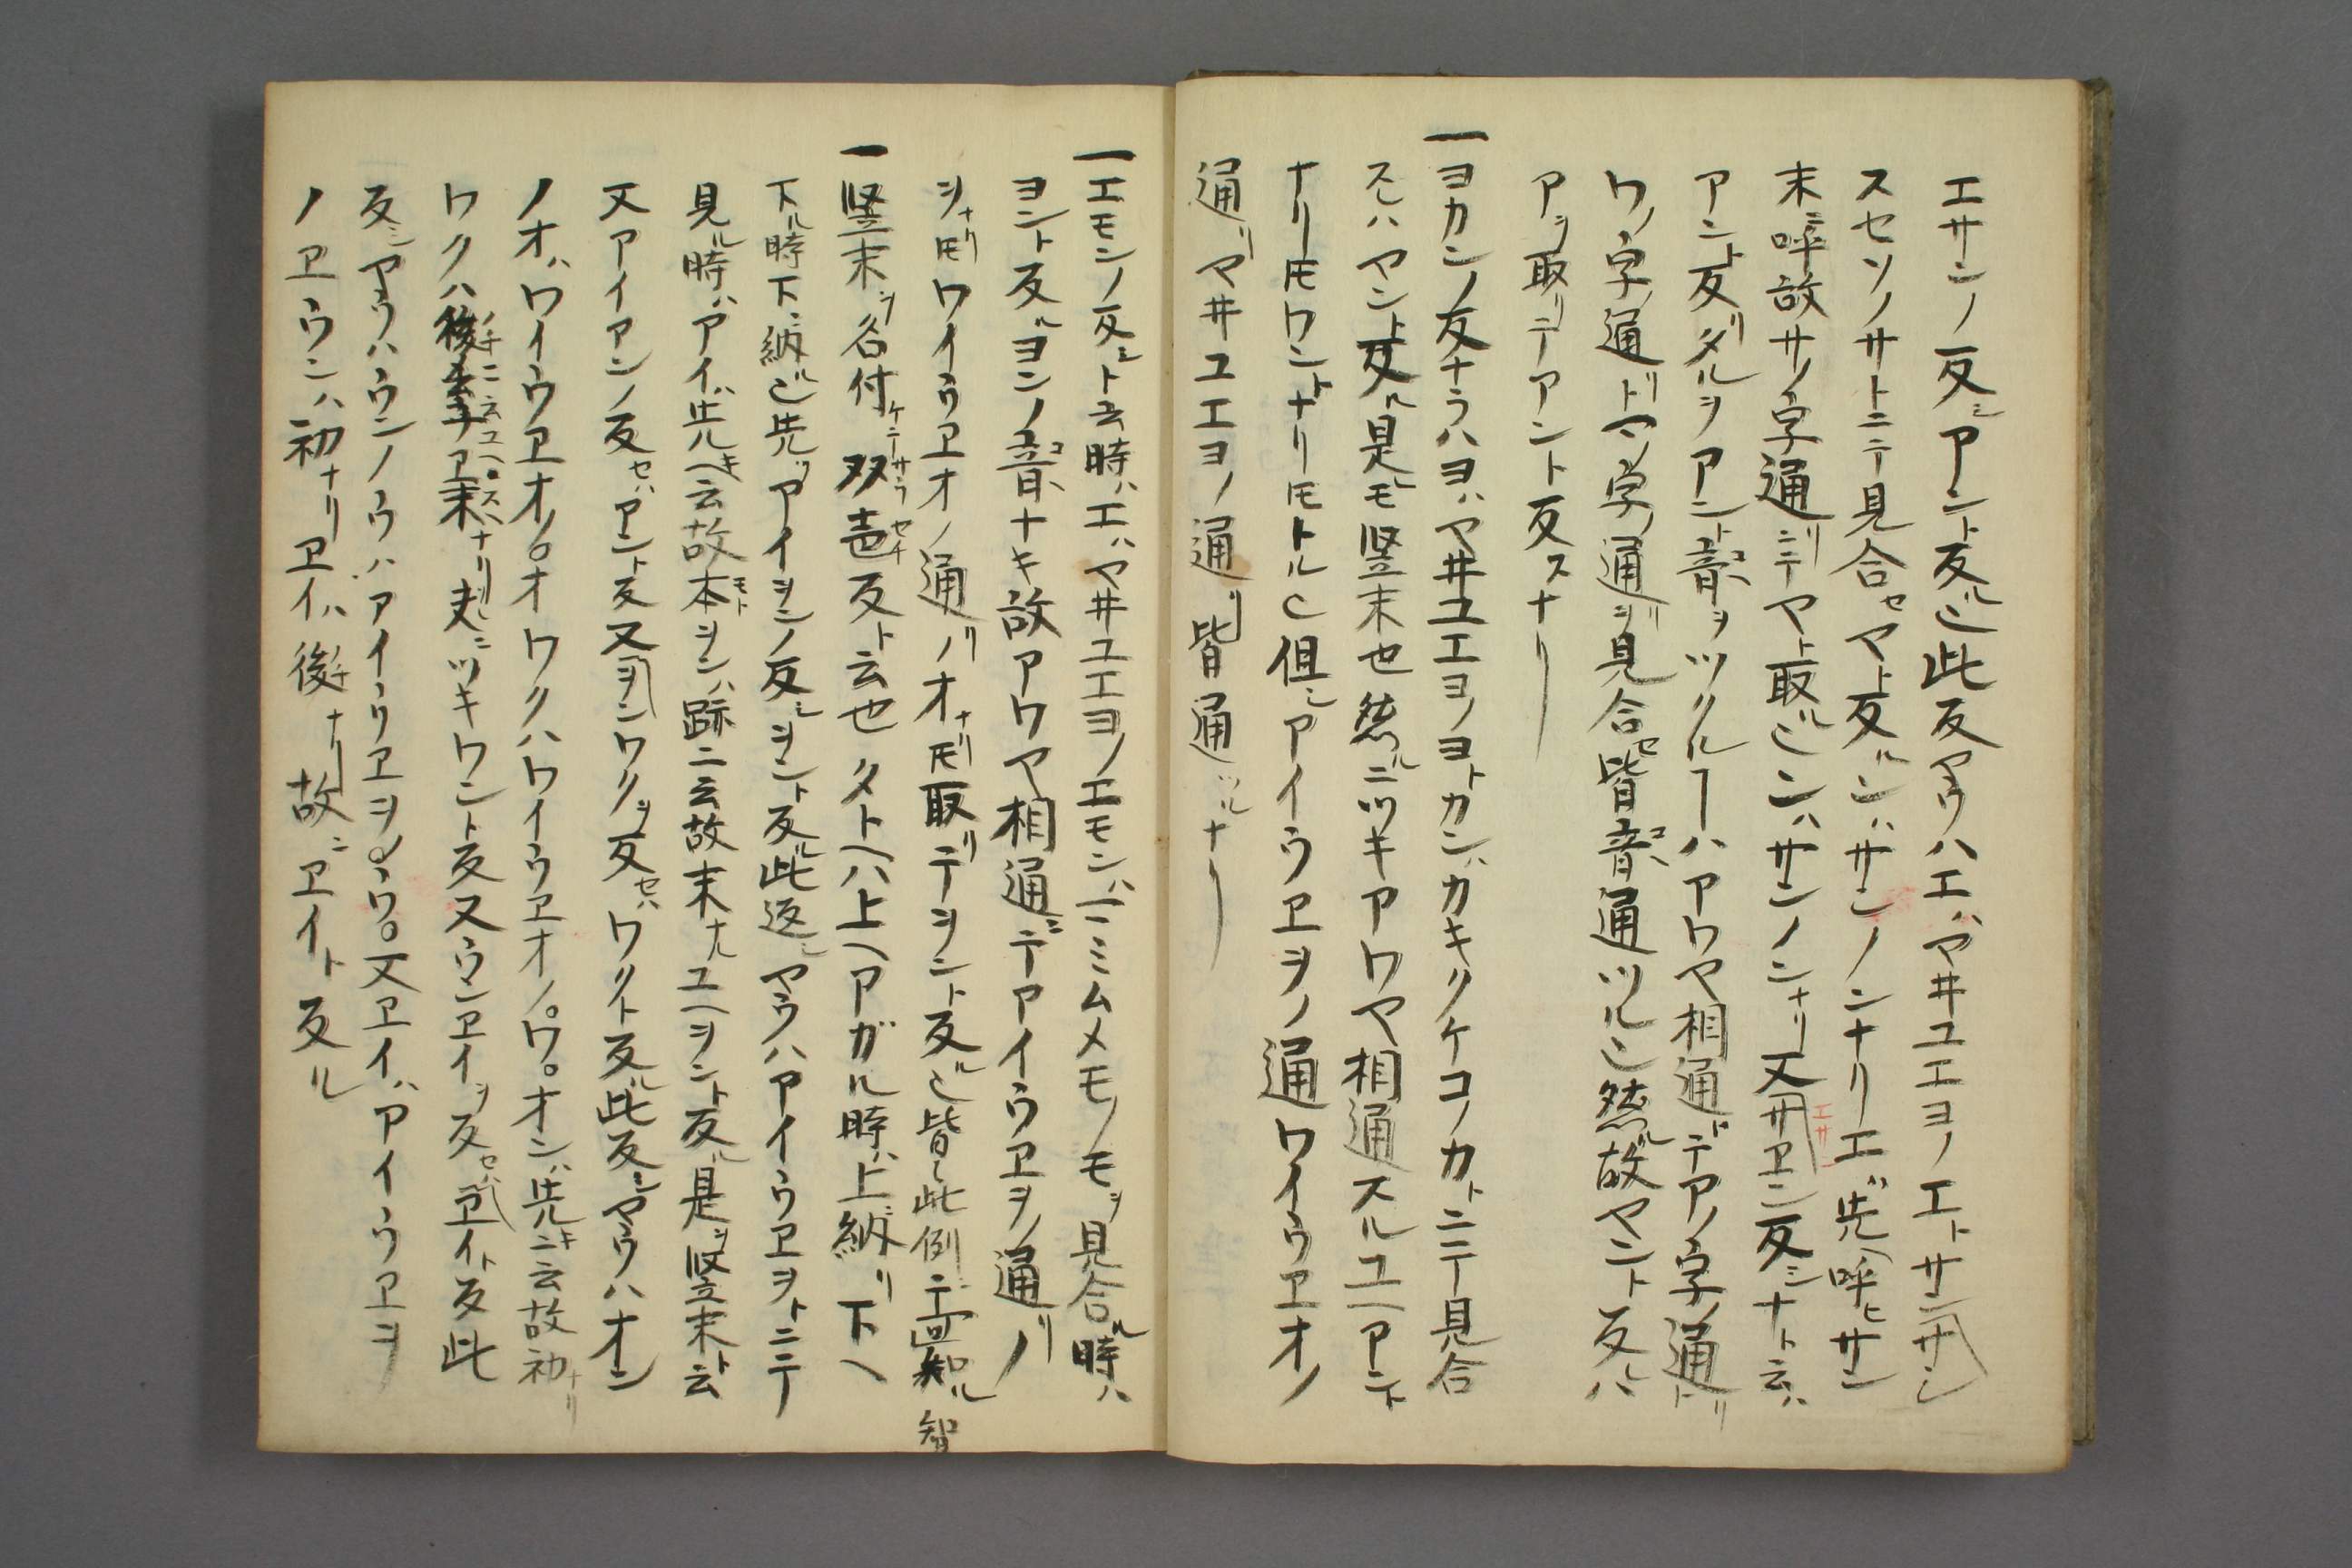 エサンノ反シアント反ル也此反ヤウハエハヤヰユエヨノエトサンサシ
スセソノサトニテ見合セヤト反ルンハサンノンナリエハ先ヘ呼ヒサン
末ニ呼故サノ字通ニテヤト取ル也ンハサンノンナリ又サヱン反シナト云ハ
アント反リタルヲアント音ヲツクルヿハアワヤ相通ドテアノ字ノ通トリ
ワノ字ノ通ドヤノ字ノ通ヲ見合セ皆音通ツル也然ル故ヤント反ルハ
アヲ取リテアント反スナリ
一ヨカンノ反ナラハヨハヤヰユエヨノヨトカンハカキクケコノカトニテ見合
スレハヤント反ル是モ竪末也然ルニツキアワヤ相通スルユヘアント
ナリ𪜈ワントナリ𪜈トル也但シアイウヱヲノ通ワイウヱオノ
通リヤヰユエヨノ通リ皆通ツルナリ
一エモンノ反シト云時ハエハヤヰユエヨノエモンハマミムメモノモヲ見合ル時ハ
ヨント反ルヨンノ音ナキ故アワヤ相通ニテアイウヱヲノ通リノ
ヲナリ𪜈ワイウヱオノ通リノオナリ𪜈取リテヲント反ル也皆々此例ニテ知ル 智
一竪末ヲ名付ケテサラセナ反ト云也タトヘハ上ヘアガル時ハ上ニ納リ下ヘ
下ル時下ニ納ル也先ヅアイヲンノ反シヲント反ル此返シヤウハアイウヱヲトニテ
見ル時ハアイハ先キヘ云故本モトヲンハ跡ニ云故末ナルユヘヲント反ル是ヲ竪末ト云
又アイアンノ反セハアント反又ヲンワクヲ反セハワクト反ル此反シヤウハオン
ノオハワイウヱオノ。オワクハワイウヱオノ。ワ。オンハ先キニ云故初ナリ
ワクハ後ニ云ユヘ末ナリ夫ニツキワント反又ウンヱイヲ反セハヱイト反此
反シヤウハウンノウハアイウヱヲノ。ウ。又ヱイハアイウヱヲ
ノヱウンハ初ナリヱイハ後ナリ故ニヱイト反ル